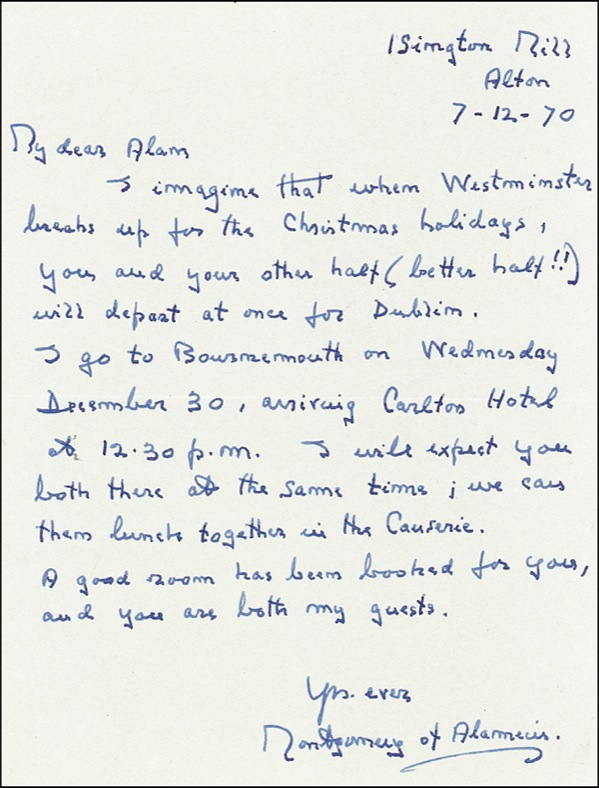 Isington Mill
Alton
7-12-70
My dear Alan
I imagine that when Westminster
breaks up for the Christmas holidays,
you and your other half (better half!!)
will depart at once for Dublin.
I go to Bournemouth on Wednesday
December 30, arriving Carlton Hotel
at 12.30 p.m. I will expect you
both there at the same time; we can
then lunch together in the Causerie.
A good room has been booked for you,
and you are both my guests.
Yrs. ever
Montgomery of Alamein.